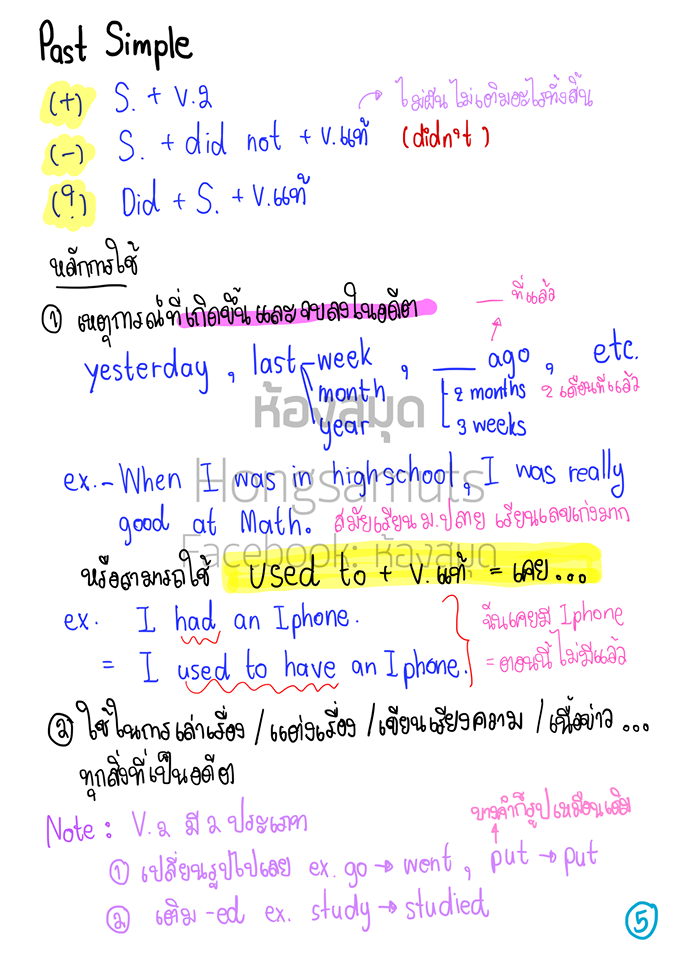 Past Simple
(+) S. + V.2
ไม่ผัน ไม่เติมอะไรทั้งสิ้น
(-) S. + did not + V.แท้ (didn't)
(?) Did + S. + V.แท้
หลักการใช้
① เหตุการณ์ที่เกิดขึ้นและจบลงในอดีต
___ ที่แล้ว
yesterday , last week , ___ ago , etc.
month 2 months 2 เดือนที่แล้ว
year 3 weeks
ห้องสมุด
ex. - When I was in highschool, I was really
Hongsamuts
good at Math. สมัยเรียน ม.ปลาย เรียนเลขเก่งมาก
Facebook: ห้องสมุด
หรือสามารถใช้ used to + V.แท้ = เคย...
ex. I had an Iphone. ฉันเคยมี Iphone
= I used to have an Iphone. = ตอนนี้ไม่มีแล้ว
② ใช้ในการเล่าเรื่อง / แต่งเรื่อง / เขียนเรียงความ / เนื้อข่าว ...
ทุกสิ่งที่เป็นอดีต
Note : V.2 มี 2 ประเภท
บางคำก็รูปเหมือนเดิม
① เปลี่ยนรูปไปเลย ex. go → went , put → put
② เติม -ed ex. study → studied
⑤